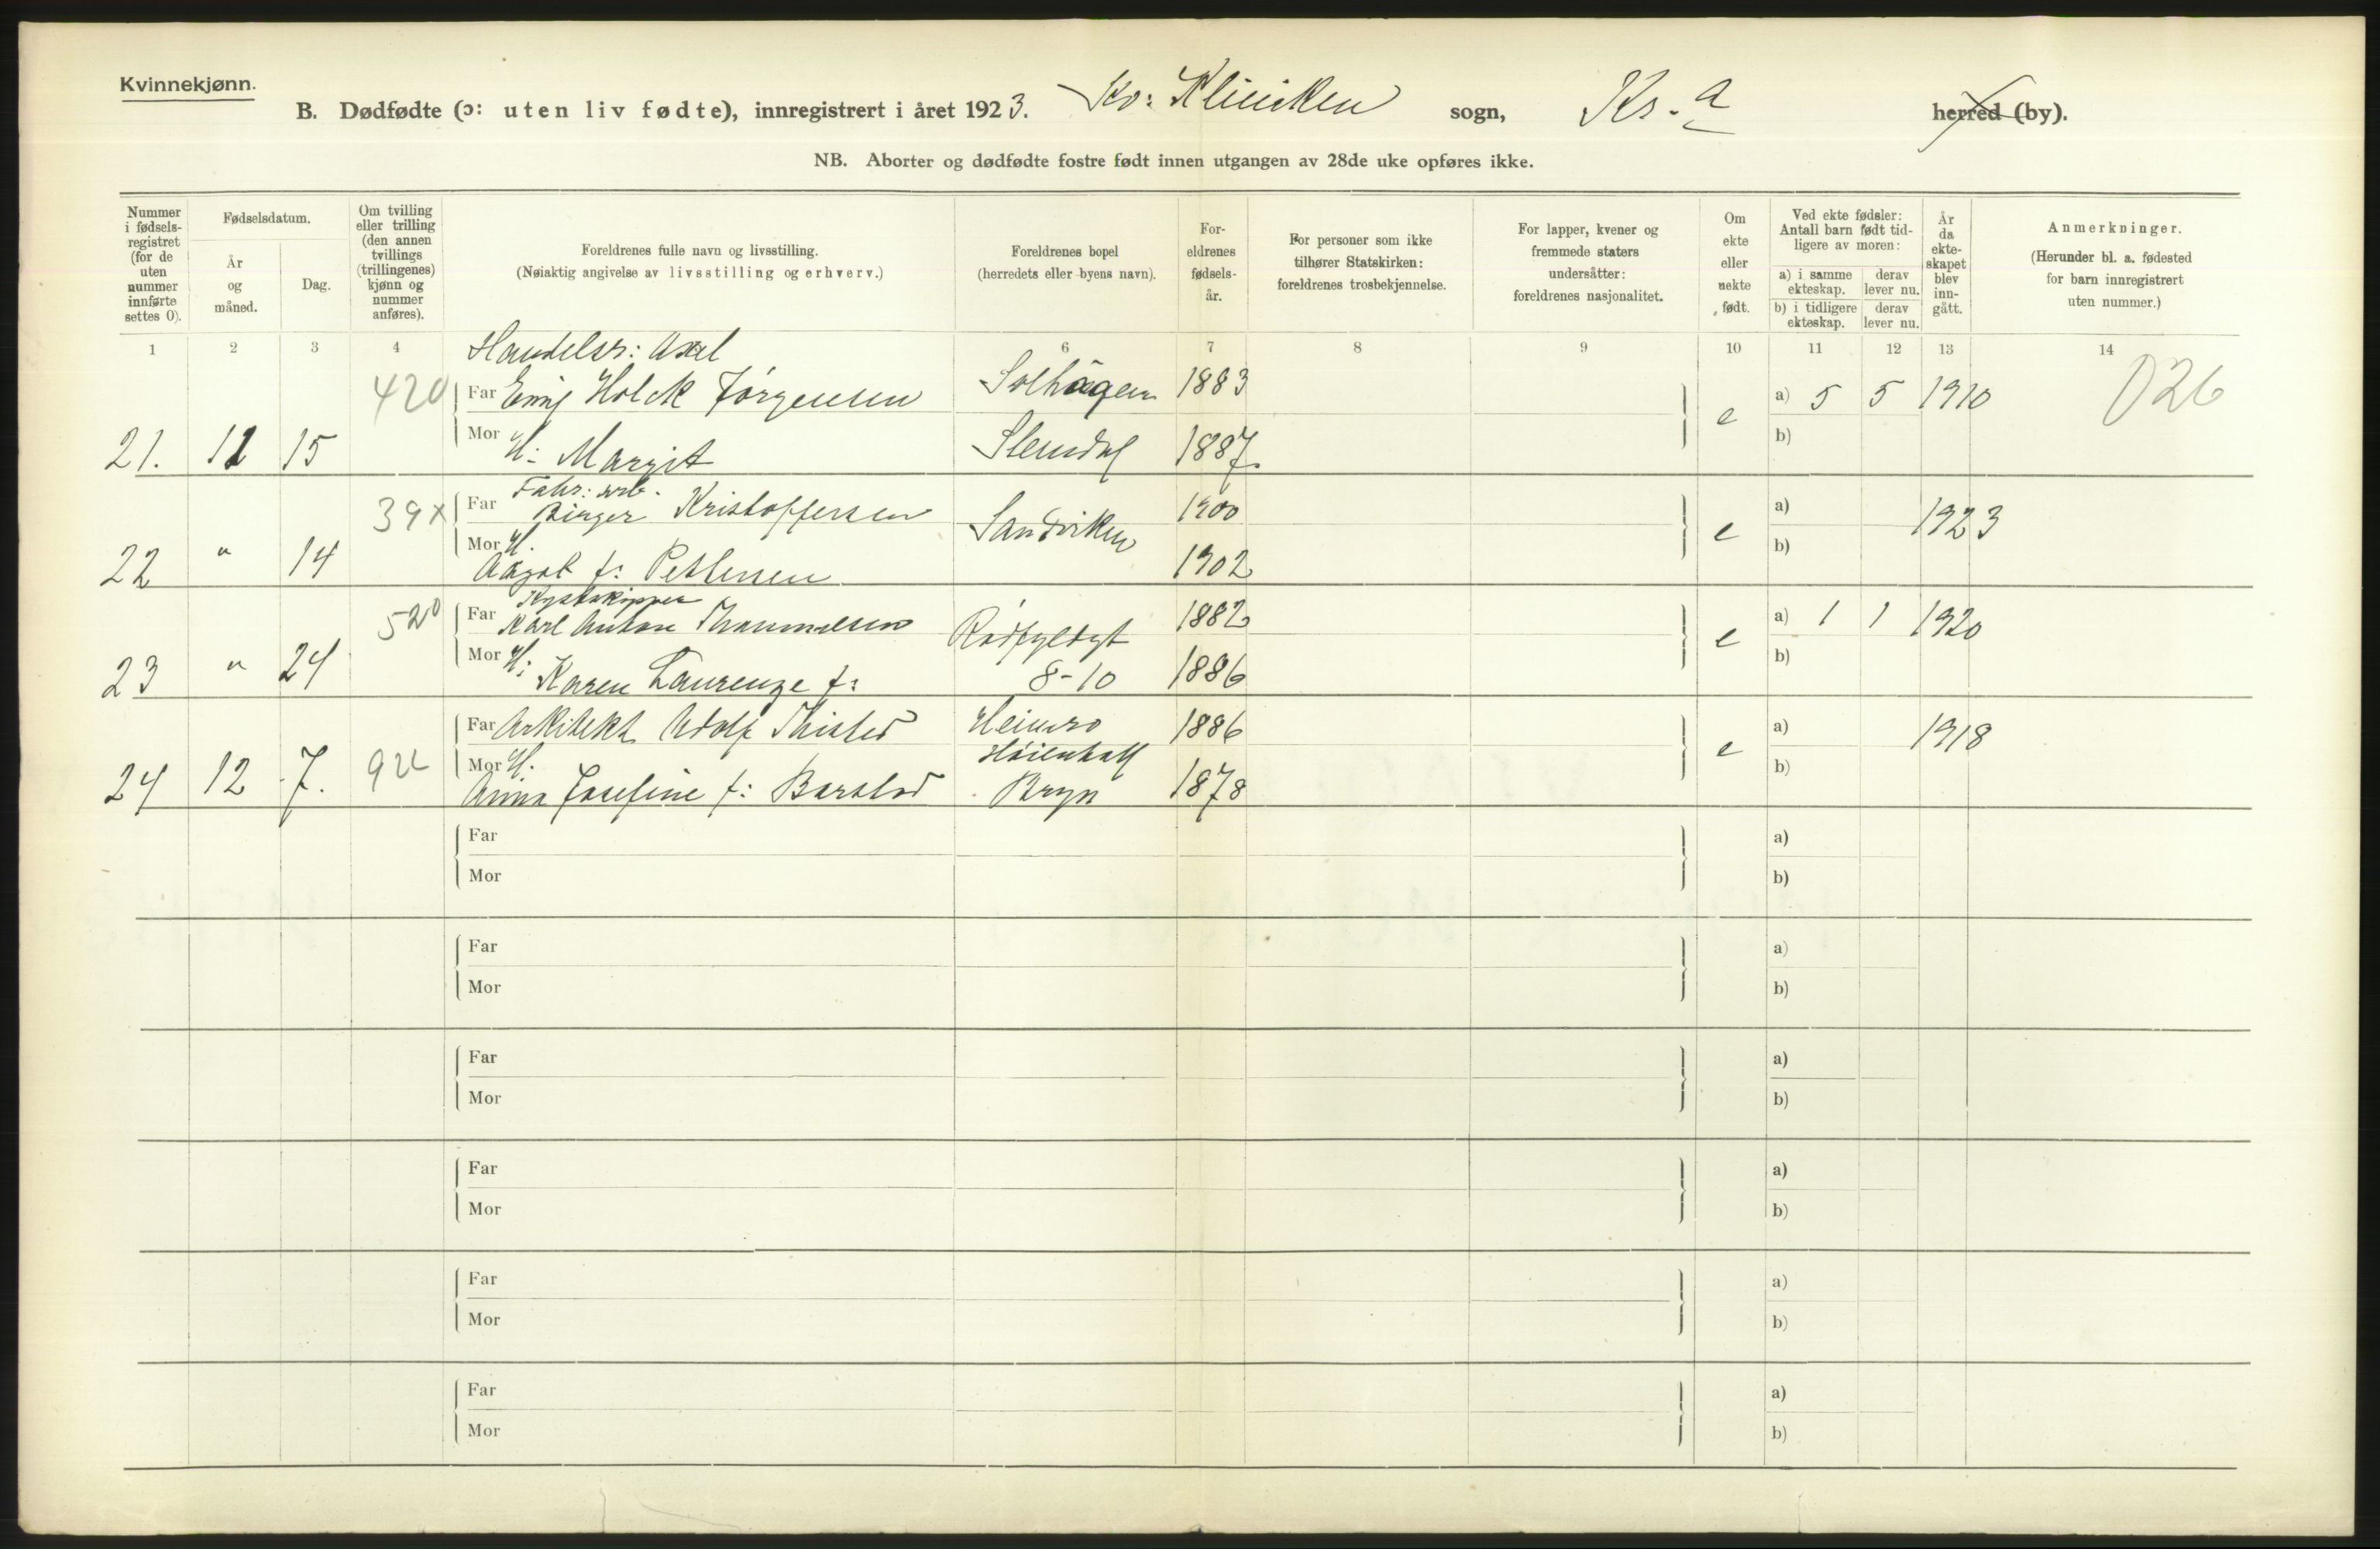 Kvinnekjønn.
B. Dødfødte (ɔ: uten liv fødte), innregistrert i året 1923. Kv: Kliniken sogn, Kr.a herred (by).
NB. Aborter og dødfødte fostre født innen utgangen av 28de uke opføres ikke.
Nummer i fødsels-registret (for de uten nummer innførte settes 0).
Fødselsdatum.
År og måned.
Dag.
Om tvilling eller trilling (den annen tvillings (trillingenes) kjønn og nummer anføres).
Foreldrenes fulle navn og livsstilling.
(Nøiaktig angivelse av livsstilling og erhverv.)
Foreldrenes bopel
(herredets eller byens navn).
For-eldrenes fødsels-år.
For personer som ikke tilhører Statskirken: foreldrenes trosbekjennelse.
For lapper, kvener og fremmede staters undersåtter: foreldrenes nasjonalitet.
Om ekte eller uekte født.
Ved ekte fødsler: Antall barn født tid-ligere av moren:
a) i samme ekteskap. derav lever nu.
b) i tidligere ekteskap. derav lever nu.
År da ekte-skapet blev inn-gått.
Anmerkninger.
(Herunder bl. a. fødested for barn innregistrert uten nummer.)
1 2 3 4 6 7 8 9 10 11 12 13 14
Handelsr: Axel
420 Far Emil Holck Jörgensen Solhaugen 1883 e a) 5 5 1910 026
21. 11 15 Mor H: Margit Slemdal 1887. b)
Fabr: arb.
39x Far Birger Kristoffersen Sandviken 1900 e a) 1923
22 " 14 Mor H. Aagot f: Pettersen 1902 b)
Kystskipper
520 Far Karl Anton 1882 e a) 1 1 1920
23 " 24 Mor H: Karen Laurenze f: 8-10 1886 b)
Far Arkitekt Adolf Thisted Heimro 1886 e a) 1918
Høienhall
24 12 7. 92 Mor H. Anna Josefine f: Barstad Bryn 1878 b)
Far a)
Mor b)
Far a)
Mor b)
Far a)
Mor b)
Far a)
Mor b)
Far a)
Mor b)
Far a)
Mor b)